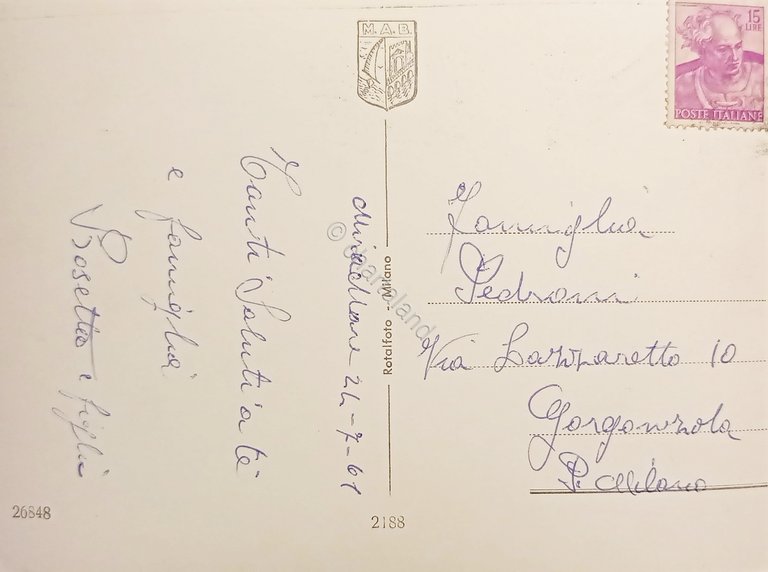 M. A. B.
15
LIRE
POSTE ITALIANE
Miramare 24-7-61
Tanti Saluti a te
e famiglia
Rosetta e figli
Rotalfoto - Milano
Famiglia
Pedroni
Via Lazzaretto 10
Gorgonzola
Pr Milano
26848
2188